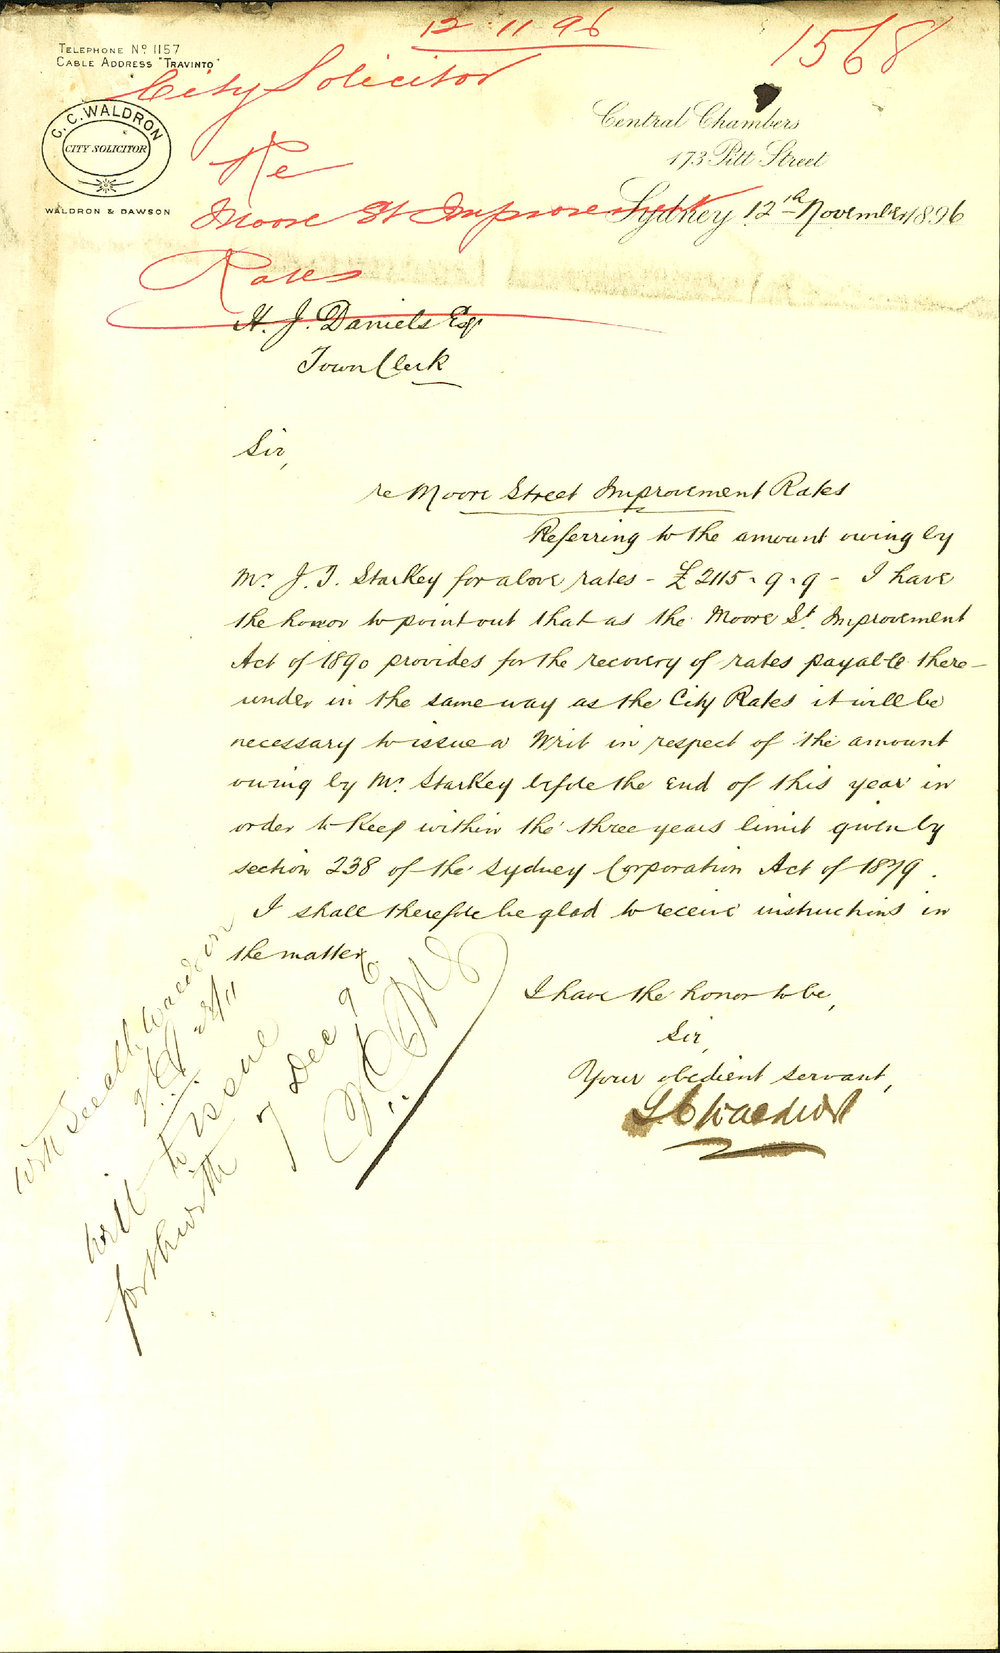 12·11·96
1568
TELEPHONE No 1157
CABLE ADDRESS "TRAVINTO"
City Solicitor
C. C. WALDRON
CITY SOLICITOR
WALDRON & DAWSON
Central Chambers
173 Pitt Street
Sydney 12th November 1896
Re
Moore St Improvement
Rates
H. J. Daniels Esqr
Town Clerk
Sir,
re Moore Street Improvement Rates
Referring to the amount owing by
Mr. J. T. Starkey for above rates - £2115.9.9 - I have
the honor to point out that as the Moore St. Improvement
Act of 1890 provides for the recovery of rates payable there-
under in the same way as the City Rates it will be
necessary to issue a Writ in respect of the amount
owing by Mr. Starkey before the end of this year in
order to keep within the three years limit given by
section 238 of the Sydney Corporation Act of 1879.
I shall therefore be glad to receive instructions in
the matter.
I have the honor to be,
Sir,
Your obedient servant,
C C Waldron
Waldron
Writ to issue
forthwith
7 Dec 96